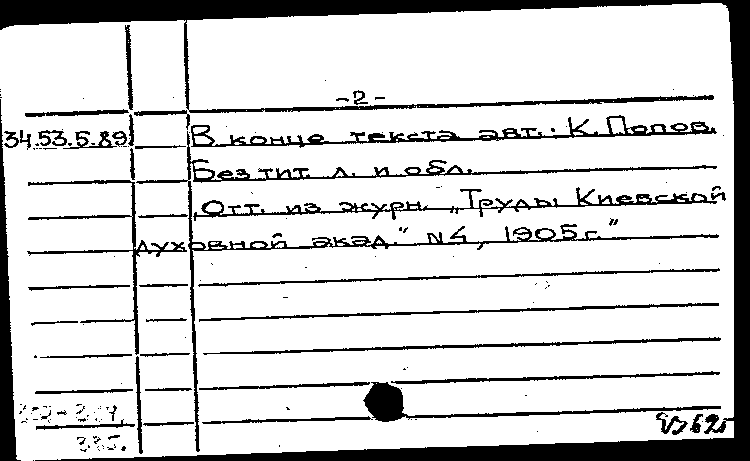 -2-
34.53.5.89 В конце текста авт.: К. Попов.
Без тит. л. и обл.
Отт. из журн. „Труды Киевской
духовной акад." N4, 1905г."
385.